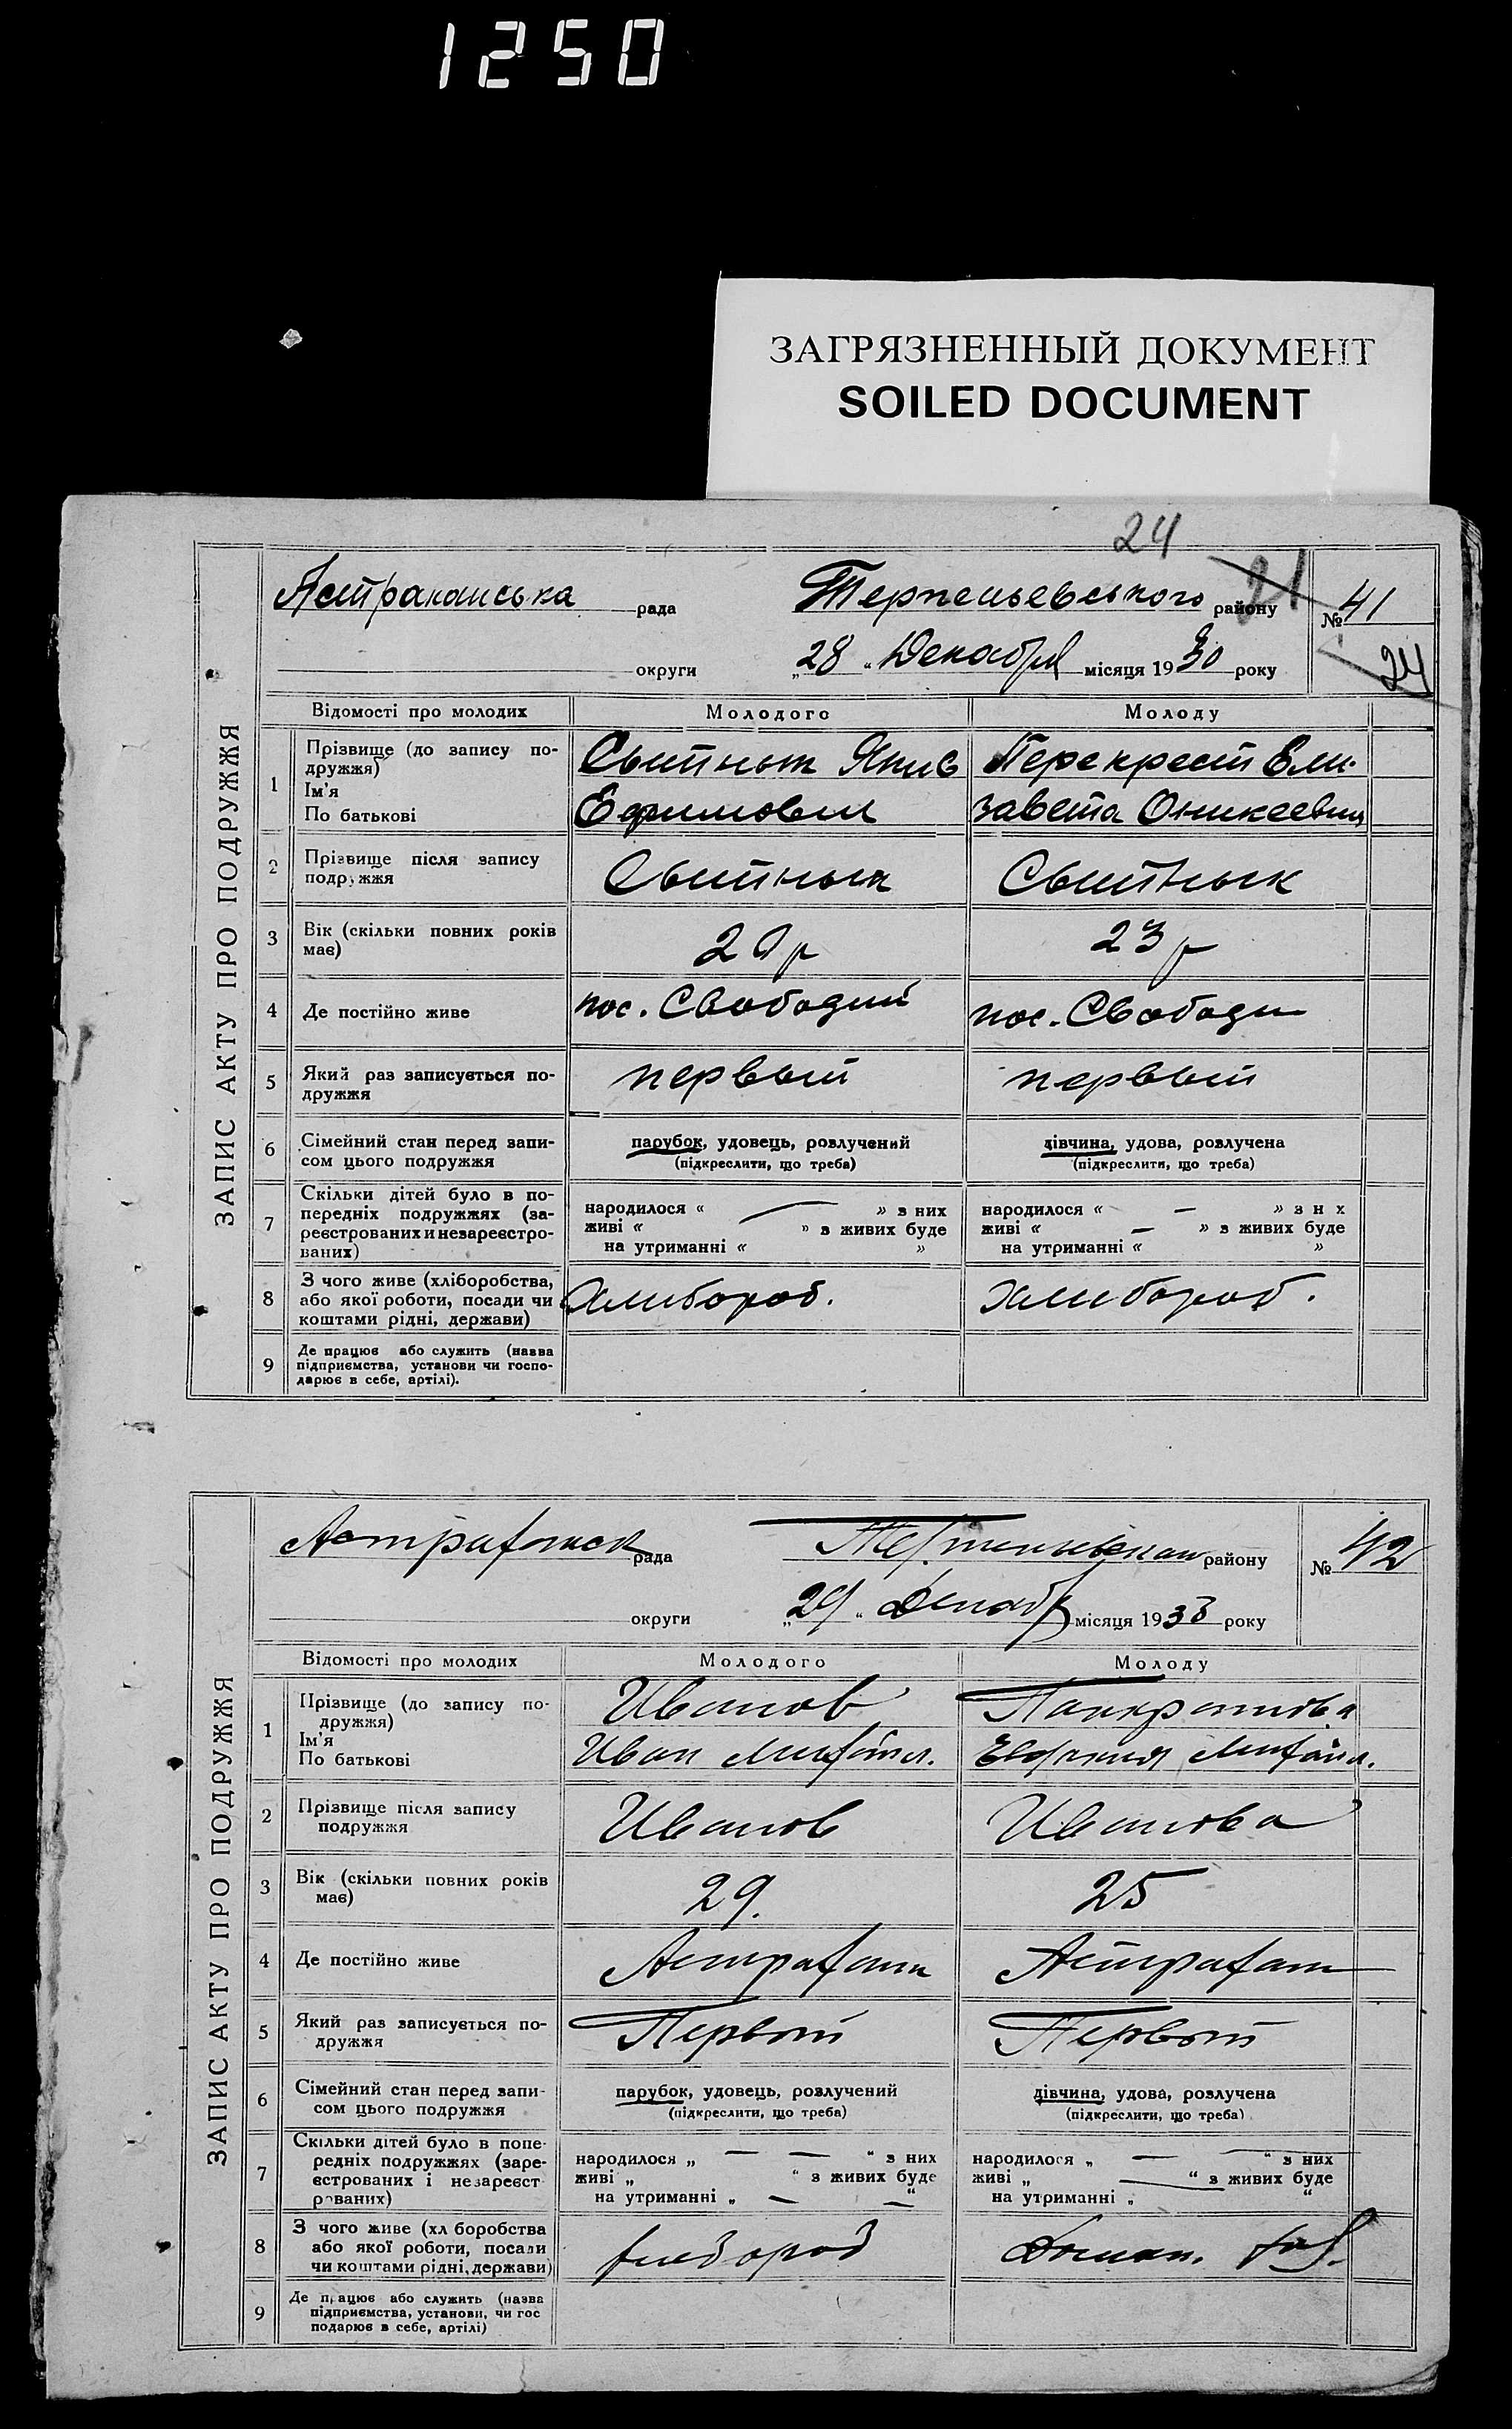 1250
ЗАГРЯЗНЕННЫЙ ДОКУМЕНТ
SOILED DOCUMENT
24
21
ЗАПИС АКТУ ПРО ПОДРУЖЖЯ
Астраханська рада Терпеньевського району №41
округи „28“ Декабря місяця 1930 року
24
Відомості про молодих Молодого Молоду
1 Прізвище (до запису по-
дружжя)
Ім'я
По батькові
Свитнык Якив
Ефимовы
Перекрест Ели-
завета Оникеевна
2 Прізвище після запису
подружжя
Свитнык Свитнык
3 Вік (скільки повних років
має)
23 р
4 Де постійно живе пос. Свободный пос. Свободн
5 Який раз записується по-
дружжя
первый первый
6 Сімейний стан перед запи-
сом цього подружжя
парубок, удовець, розлучений
(підкреслити, що треба)
дівчина, удова, розлучена
(підкреслити, що треба)
7 Скільки дітей було в по-
передніх подружжях (за-
реєстрованих и незареєстро-
ваних)
народилося « — » з них
живі « » з живих буде
на утриманні « »
народилося « — » з н х
живі « — » з живих буде
на утриманні « »
8 З чого живе (хліборобства,
або якої роботи, посади чи
коштами рідні, держави)
Хлибороб. хлибороб.
9 Де працює або служить (назва
підприємства, установи чи госпо-
дарює в себе, артілі).
ЗАПИС АКТУ ПРО ПОДРУЖЖЯ
Астраханск рада району №42
округи „29“ Декабр місяця 1933 року
Відомості про молодих Молодого Молоду
1 Прізвище (до запису по-
дружжя)
Ім'я
По батькові
Иванов
Иван Михайл.
Панкратова
Евгения Михайл.
2 Прізвище після запису
подружжя
Иванов Иванова
3 Вік (скільки повних років
має)
29. 25
4 Де постійно живе Астрахань Астрахан
5 Який раз записується по-
дружжя
Первый Первый
6 Сімейний стан перед запи-
сом цього подружжя
парубок, удовець, розлучений
(підкреслити, що треба)
дівчина, удова, розлучена
(підкреслити, що треба)
7 Скільки дітей було в попе-
редніх подружжях (заре-
єстрованих і незареєст
рованих)
народилося „ — — “ з них
живі „ “ з живих буде
на утриманні „ — — “
народилося „ — “ з них
живі „ — “ з живих буде
на утриманні „ “
8 З чого живе (хл боробства
або якої роботи, посади
чи коштами рідні, держави)
хлебороб Домаш. хоз.
9 Де працює або служить (назва
підприємства, установи, чи гос
подарює в себе, артілі)